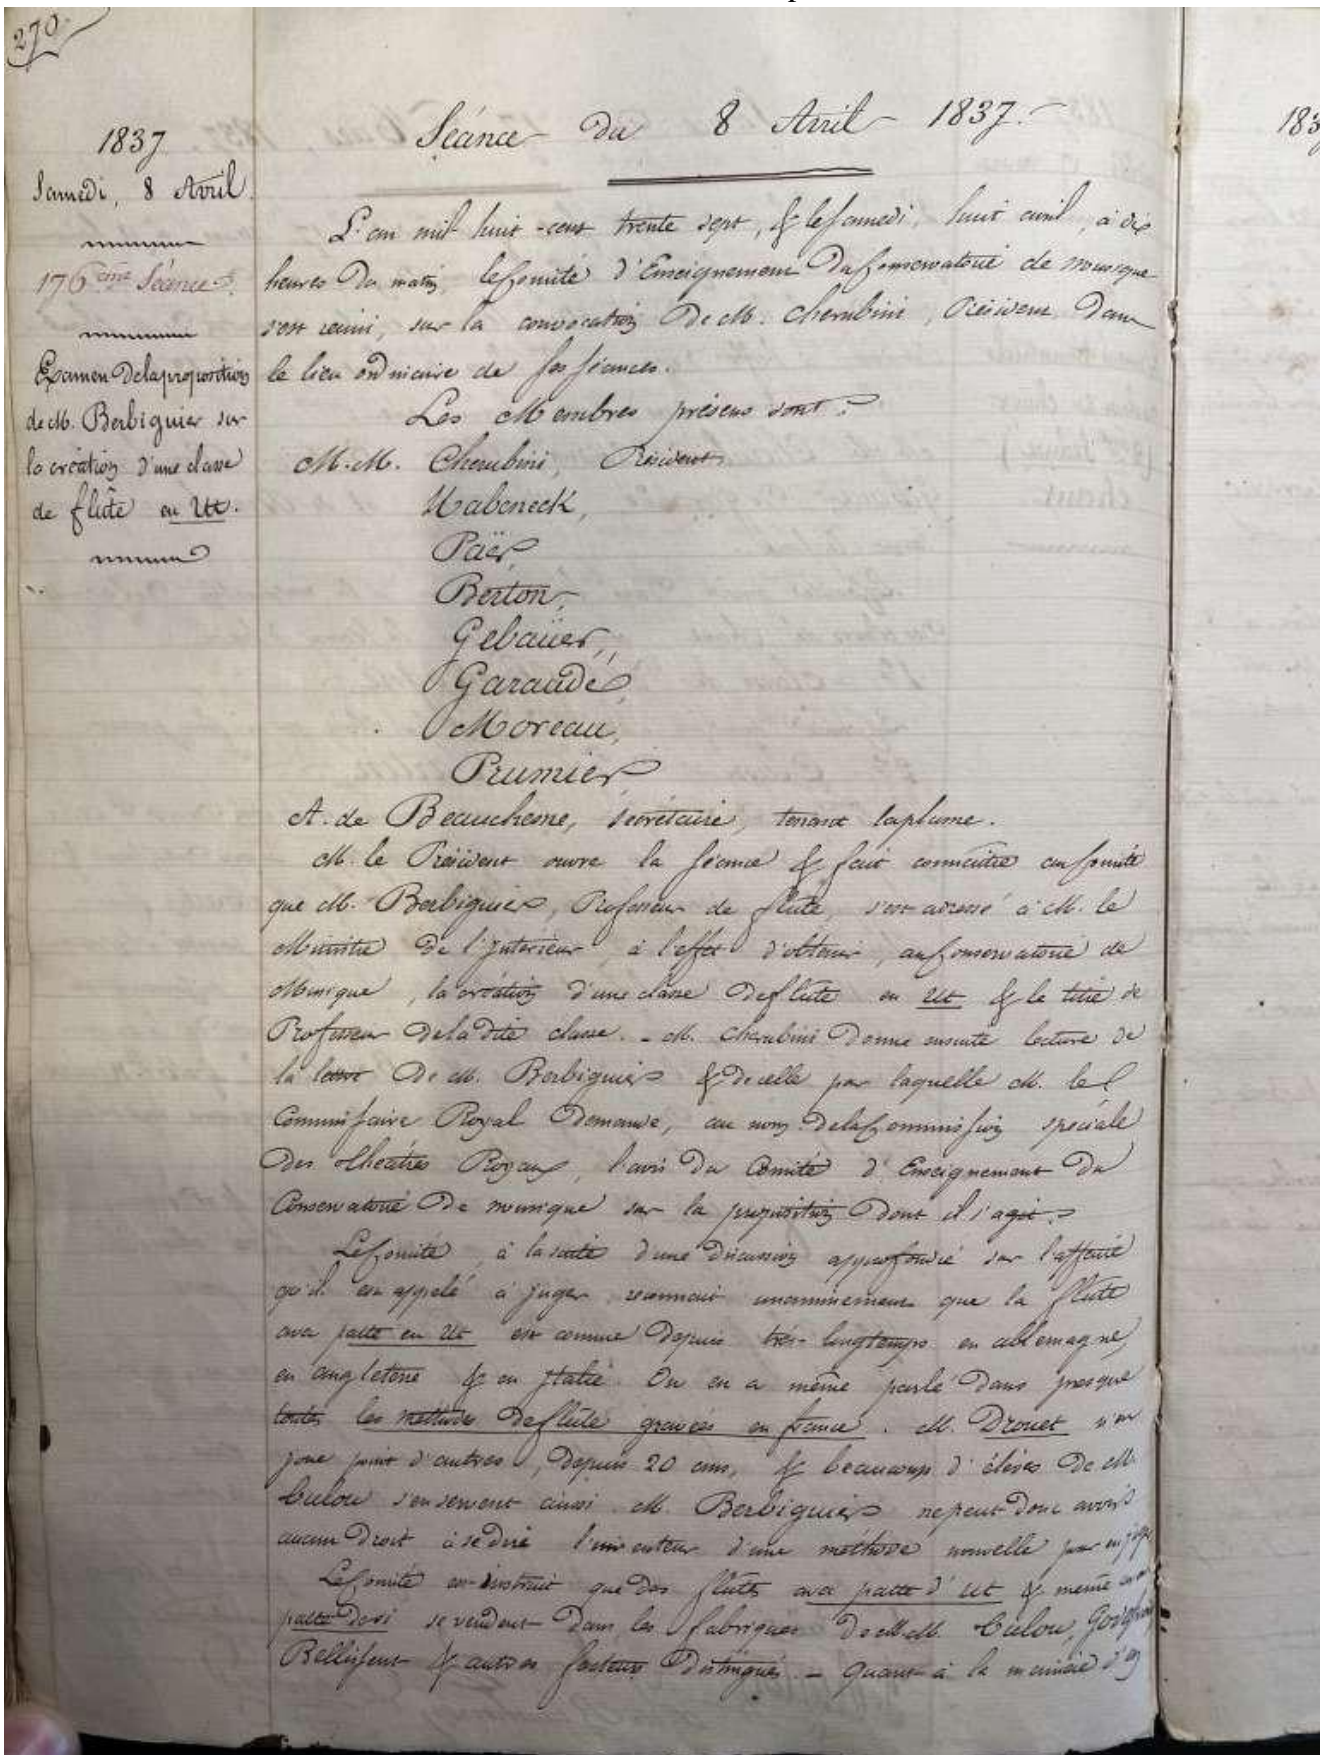 270
1837
Samedi, 8 Avril
176ème Séance.
Examen de la proposition
de M. Berbiguier sur
la création d'une classe
de flûte en Ut.
Séance du 8 Avril 1837.
L'an mil huit-cent trente sept, & le Samedi, huit avril, à dix
heures du matin, le Comité d'Enseignement du Conservatoire de musique
s'est réuni, sur la convocation de M. Cherubini, Président, dans
le lieu ordinaire de ses séances.
Les Membres présens sont :
M.M. Cherubini, Président
Habeneck,
Paër,
Berton,
Gebaüer,
Garaudé,
Moreau,
Prumier
A. de Beauchesne, secrétaire, tenant la plume.
M. le Président ouvre la séance & fait connaître au Comité
que M. Berbiguier, Professeur de flûte, s'est adressé à M. le
Ministre de l'Intérieur, à l'effet d'obtenir, au Conservatoire de
Musique, la création d'une classe de flûte en Ut & le titre de
Professeur de la dite classe. - M. Cherubini donne ensuite lecture de
la lettre de M. Berbiguier & de celle par laquelle M. le
Commissaire Royal demande, au nom de la Commission spéciale
des théâtres Royaux, l'avis du Comité d'Enseignement du
Conservatoire de musique sur la proposition dont il s'agit.
Le Comité, à la suite d'une discussion approfondie sur l'affaire
qu'il est appelé à juger, reconnait unanimement que la flûte
avec patte en Ut est connue depuis très-longtemps en allemagne,
en angleterre & en Italie. On en a même parlé dans presque
toutes les méthodes de flûte gravées en france. M. Drouet n'en
joue point d'autres, depuis 20 ans, & beaucoup d'élèves de M.
Tulou s'en servent aussi. M. Berbiguier ne peut donc avoir
aucun droit à se dire l'inventeur d'une méthode nouvelle pour en jouer
Le Comité est instruit que des flûtes avec patte d'ut & même
patte de si se vendent dans les fabriques de M.M. Tulou, Godefroy,
Bellissent & autres facteurs distingués. - quant à la manière d'en